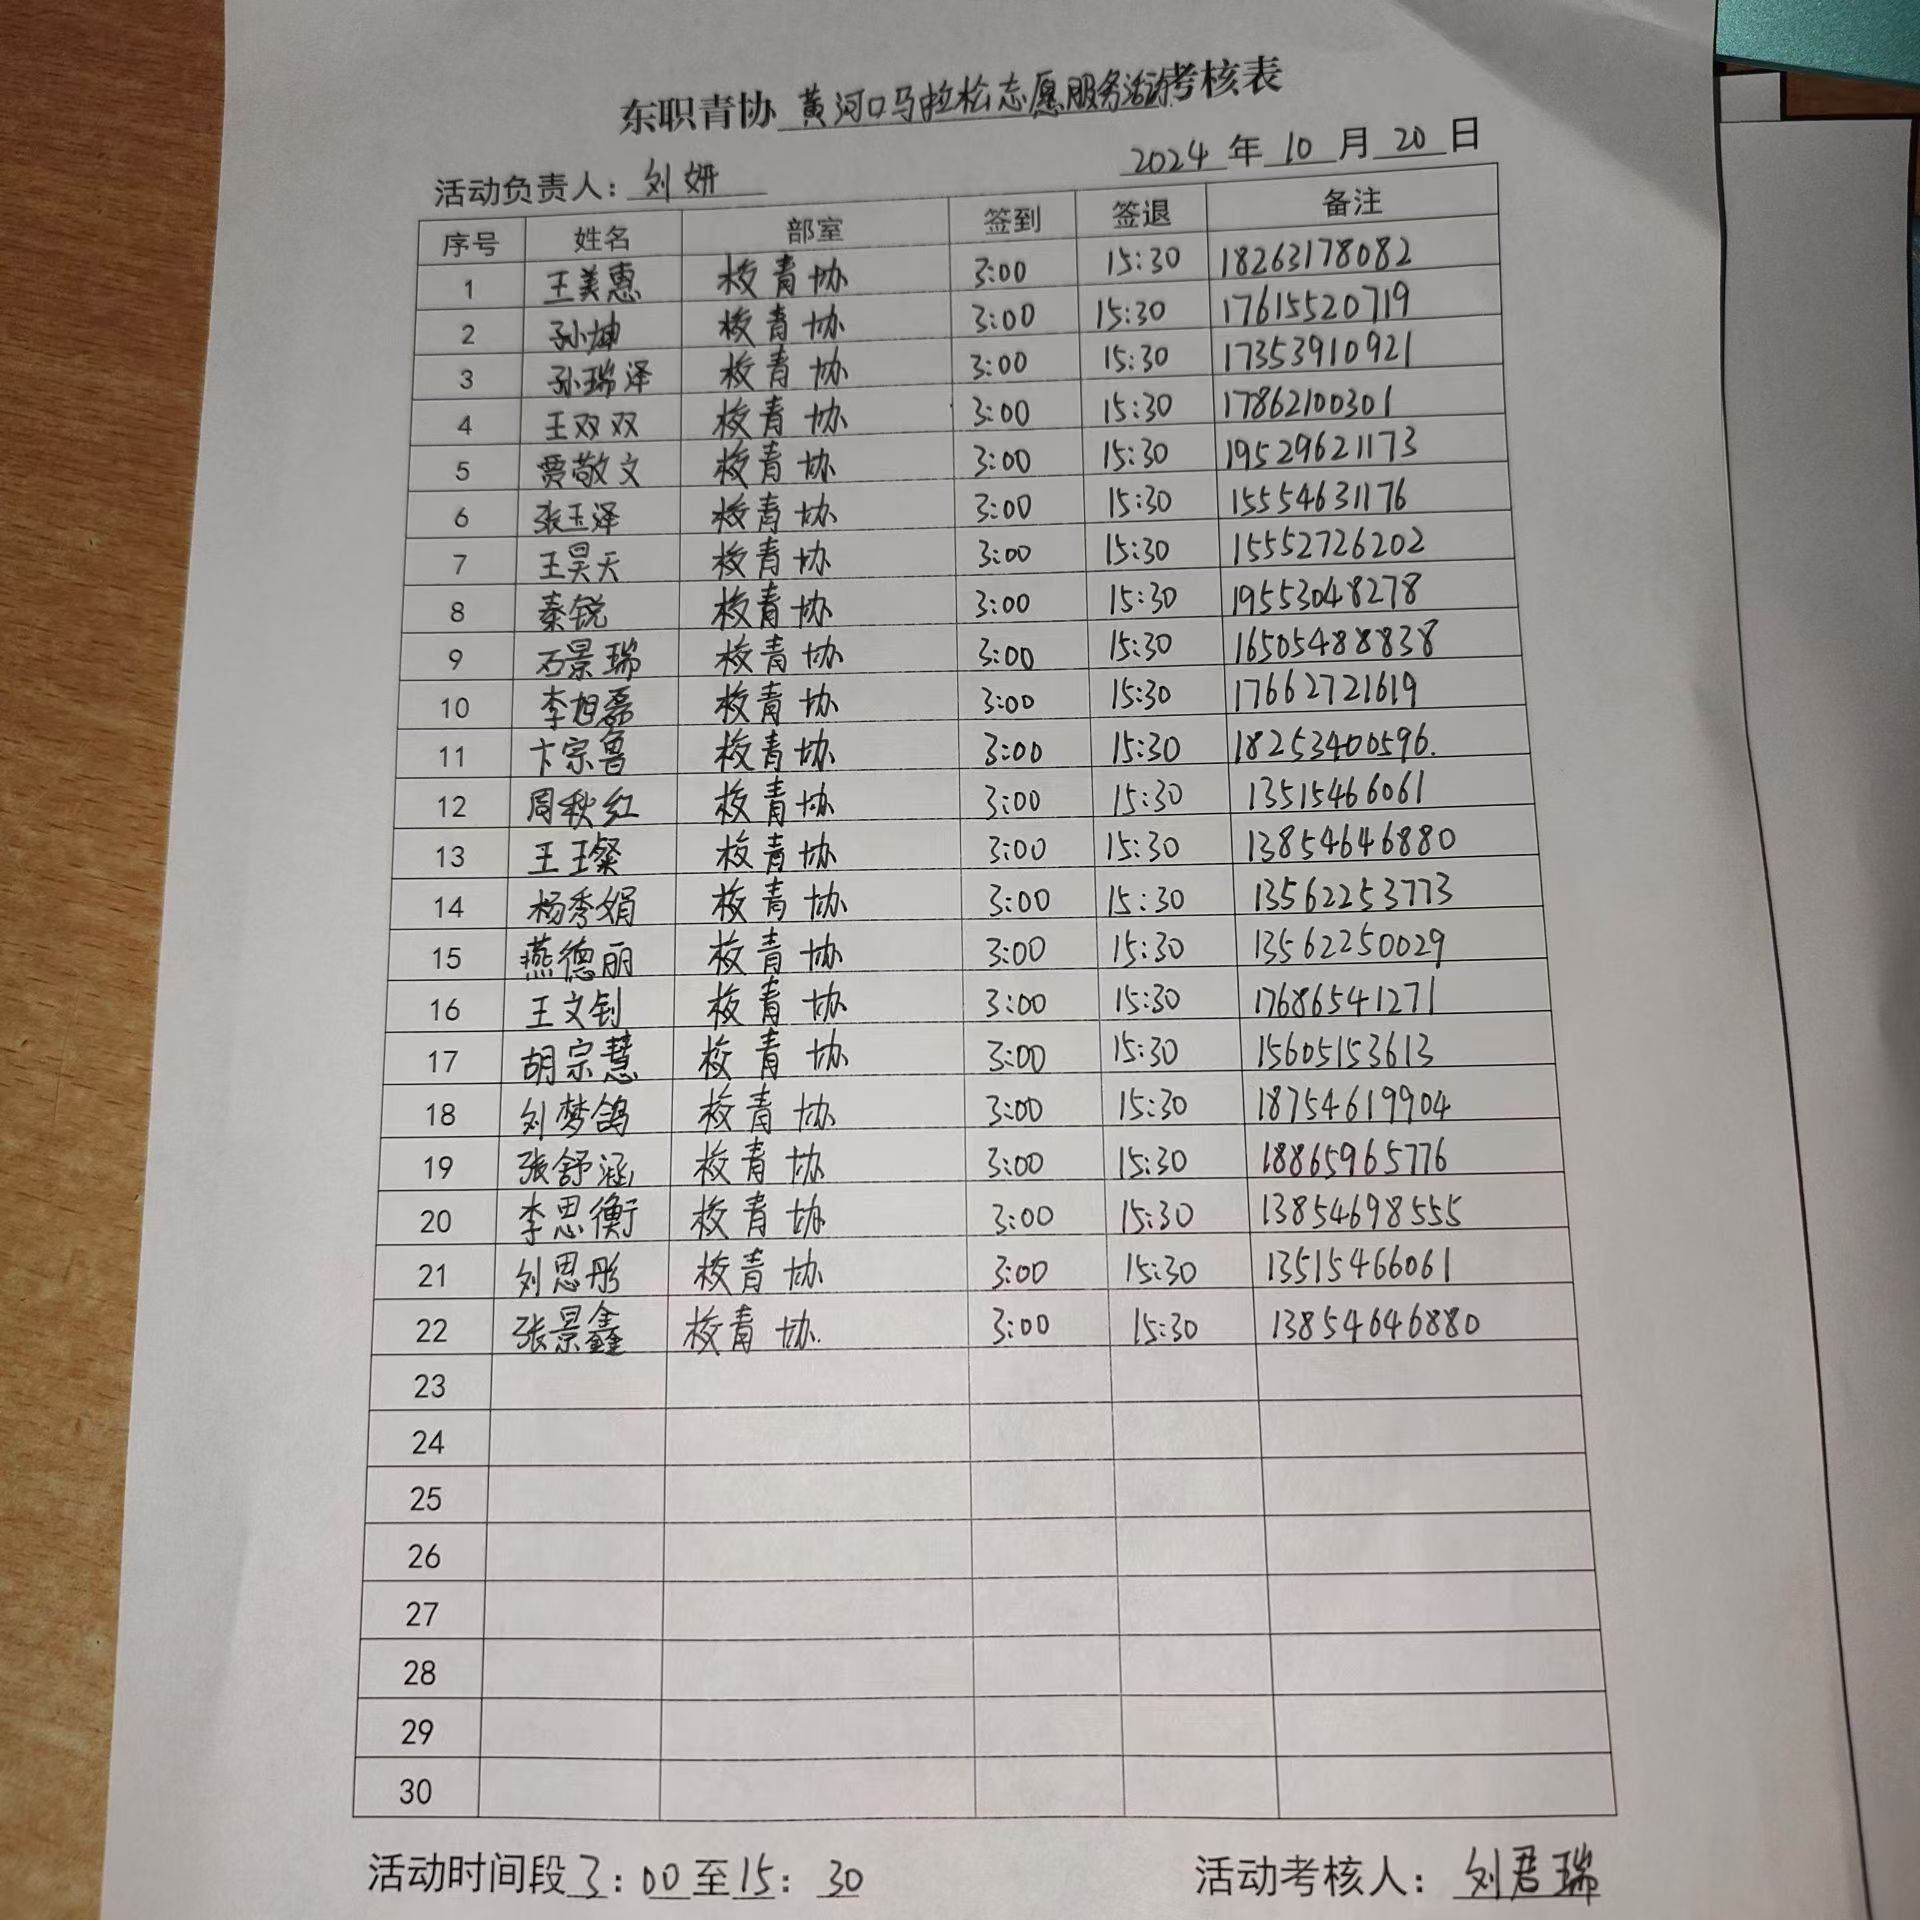 东职青协 黄河口马拉松志愿服务活动考核表
活动负责人：刘妍 2024 年 10 月 20 日
序号 姓名 部室 签到 签退 备注
1 王美惠 校青协 3:00 15:30 18263178082
2 孙坤 校青协 3:00 15:30 17615520719
3 孙瑞泽 校青协 3:00 15:30 17353910921
4 王双双 校青协 3:00 15:30 17862100301
5 贾敬文 校青协 3:00 15:30 19529621173
6 张玉泽 校青协 3:00 15:30 15554631176
7 王昊天 校青协 3:00 15:30 15552726202
8 秦锐 校青协 3:00 15:30 19553048278
9 石景瑞 校青协 3:00 15:30 16505488838
10 李旭磊 校青协 3:00 15:30 17662721619
11 卞宗鲁 校青协 3:00 15:30 18253400596.
12 周秋红 校青协 3:00 15:30 13515466061
13 王璨 校青协 3:00 15:30 13854646880
14 杨秀娟 校青协 3:00 15:30 13562253773
15 燕德丽 校青协 3:00 15:30 13562250029
16 王文钊 校青协 3:00 15:30 17686541271
17 胡宗慧 校青协 3:00 15:30 15605153613
18 刘梦鸽 校青协 3:00 15:30 18754619904
19 张舒涵 校青协 3:00 15:30 18865965776
20 李思衡 校青协 3:00 15:30 13854698555
21 刘思彤 校青协 3:00 15:30 13515466061
22 张景鑫 校青协. 3:00 15:30 13854646880
23
24
25
26
27
28
29
30
活动时间段 3：00 至 15：30 活动考核人：刘君瑞